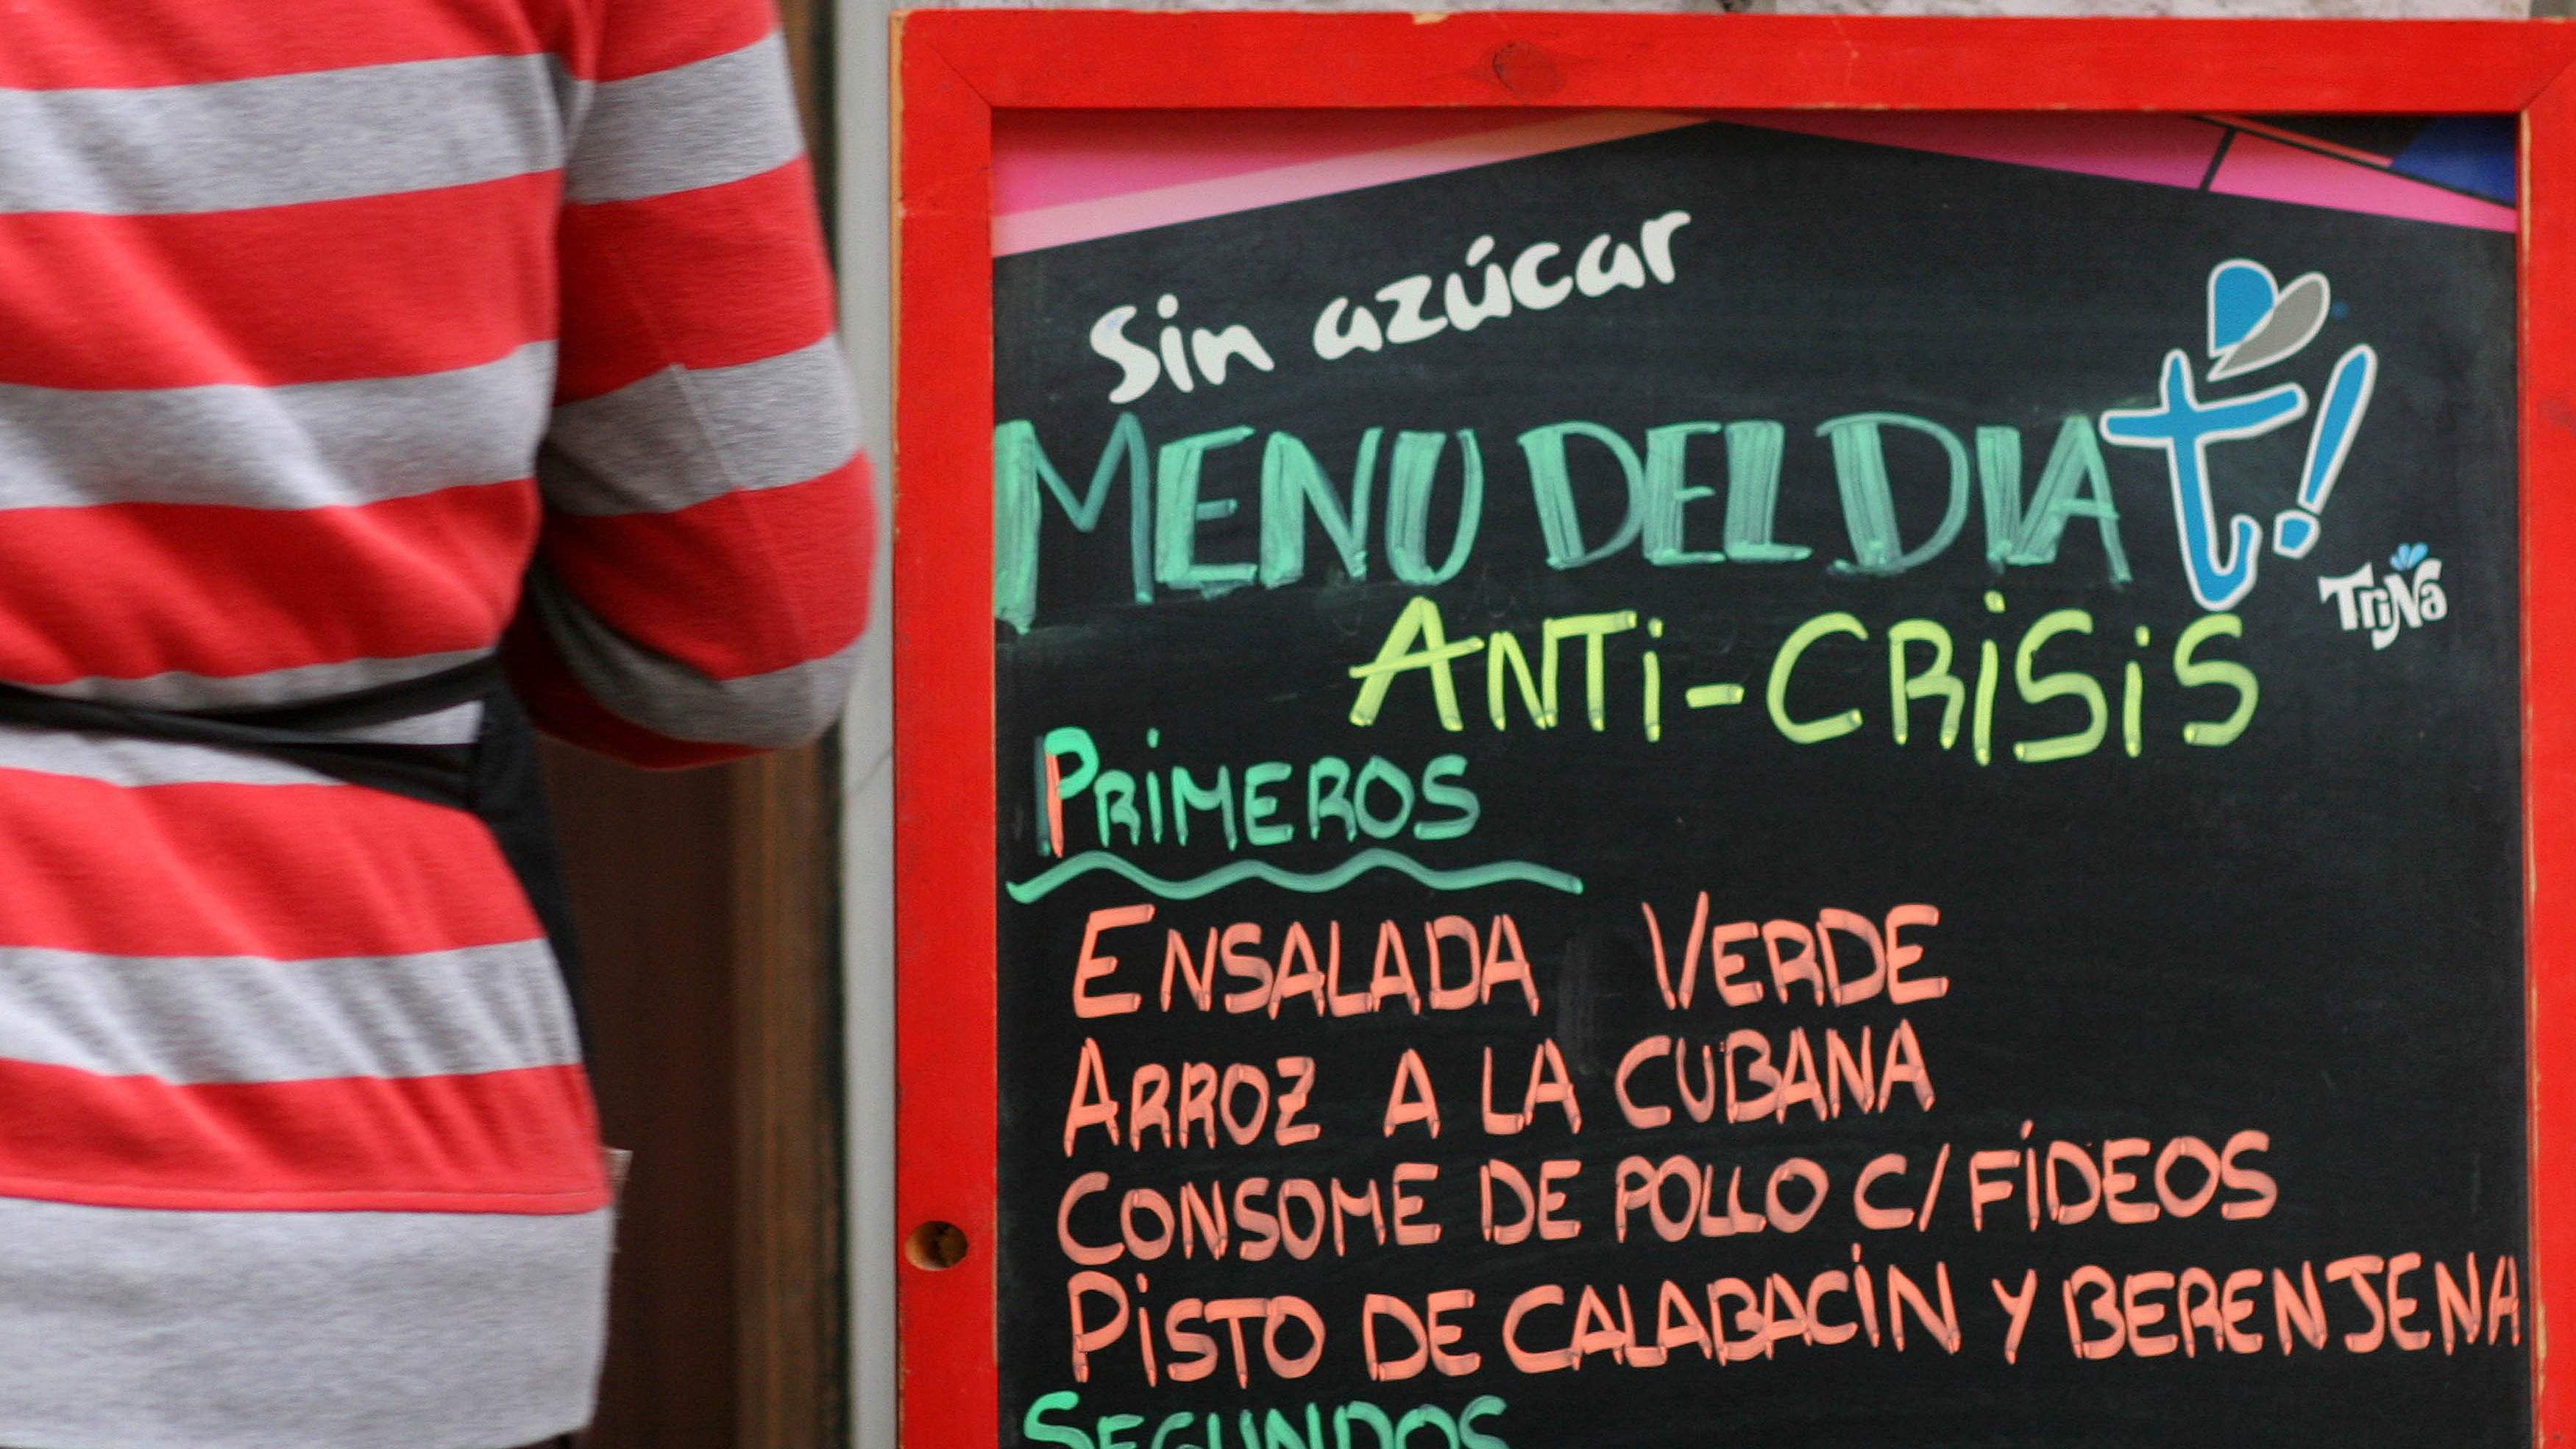 Sin azúcar
MENU DEL DIA
t!
TriNa
ANTi-CRiSiS
PRiMEROS
ENSALADA VERDE
ARROZ A LA CUBANA
CONSOME DE POLLO C/FíDEOS
PiSTO DE CALABACíN Y BERENJENA
SEGUNDOS